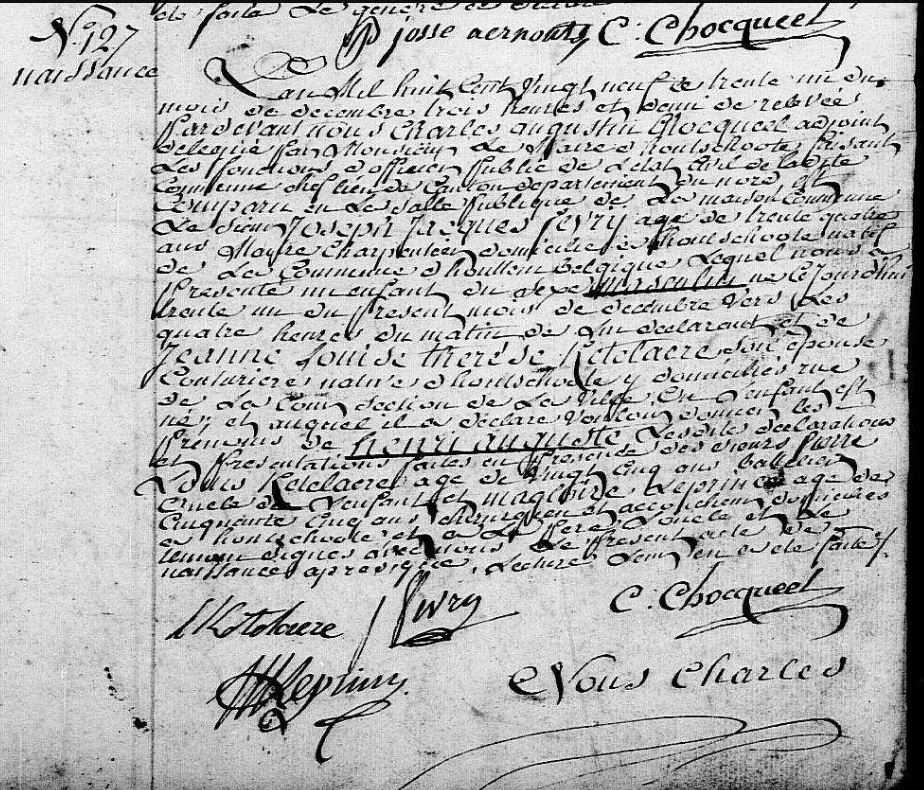 été faite le
josse aernouts C: Chocqueel
N° 127
naissance
L'an Mil huit Cent Vingt neuf le trente un du
mois de decembre trois heures et demi de relevée
Pardevant nous Charles augustin Chocqueel adjoint
delegué par Monsieur Le Maire d'hontschoote faisant
Les fonctions d'officier Public de L'etat Civil de Ladite
Commune chef lieu de Canton departement du nord est
Comparu en La salle Publique de La maison Commune
Le sieur Joseph Jacques fevry age de trente quatre
ans Maitre Charpentier domicilié a hontschoote natif
de La Commune d'houttem Belgique Lequel nous a
Presenté un enfant du sexe masculin né Cejourdhui
trente un du present mois de decembre vers Les
quatre heures du matin de lui declarant et de
Jeanne Louise thérése Ketelaere son épouse
Couturiere native d'hontschoote y domiciliés rue
de La Cour section de La Ville ou L'enfant est
né, et auquel il a declaré Vouloir donner les
Prenoms de henri auguste Lesdites declarations
et Presentations faites en Presence des sieurs Pierre
Louis Ketelaere age de Vingt Cinq ans batelier
oncle de L'enfant et magloire Leprince age de
Cinquante Cinq ans chirurgien et accoucheur domiciliés
a hontschoote et ont Le Pere L'oncle et Le
temoin signés avec nous Le Present acte de
naissance apres que Lecture Leur en a eté faite
L Ketelaere fevry C: Chocqueel
Leprince
Nous Charles